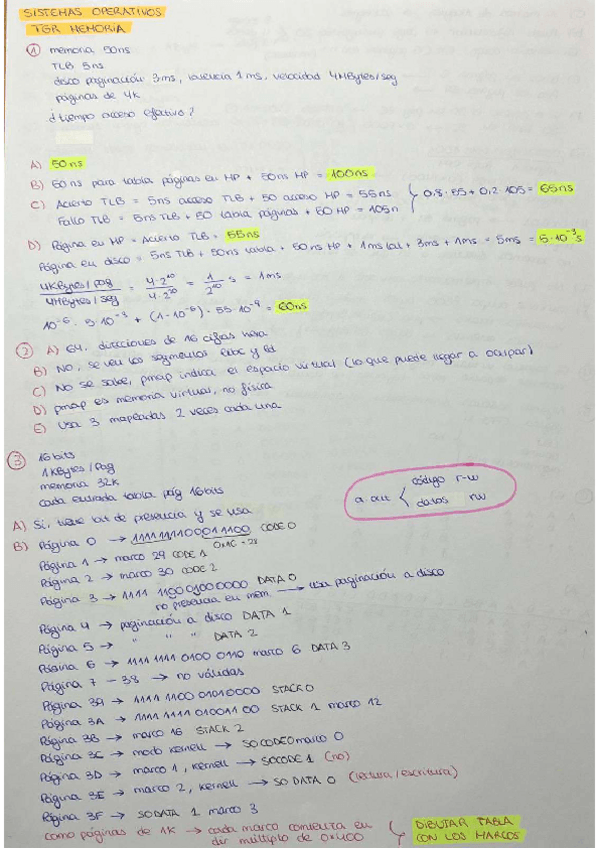 SISTEMAS OPERATIVOS
TGR MEMORIA
① memoria 50ns
TLB 5ns
disco paginación 3ms, latencia 1ms, velocidad 4MBytes/seg
páginas de 4K
¿tiempo acceso efectivo?
A) 50ns
B) 50ns para tabla páginas en MP + 50ns MP = 100ns
C) Acierto TLB = 5ns acceso TLB + 50 acceso MP = 55ns
Fallo TLB = 5ns TLB + 50 tabla páginas + 50 MP = 105n } 0,8·55 + 0,2·105 = 65ns
D) Página en MP = Acierto TLB = 55ns
Página en disco = 5ns TLB + 50ns tabla + 50ns MP + 1ms lat + 3ms + 1ms = 5ms = 5·10⁻³s
4KBytes/pag / 4MBytes/seg = 4·2¹⁰ / 4·2²⁰ = 1/2¹⁰ s = 1ms
10⁻⁶ · 5·10⁻³ + (1-10⁻⁶)·55·10⁻⁹ = 60ns
② A) 64, direcciones de 16 cifras hexa
B) NO, se ven los segmentos
C) No se sabe, pmap indica el espacio virtual (lo que puede llegar a ocupar)
D) pmap es memoria virtual, no física
E) Usa 3 mapeadas 2 veces cada una
③ 16 bits
1KBytes/Pag
memoria 32K
cada entrada tabla pág 16bits
a.out { código r-w
datos rw
A) Si, tiene bit de presencia y se usa
B) Página 0 → CODE 0
0x1C = 28
Página 1 → marco 29 CODE 1
Página 2 → marco 30 CODE 2
Página 3 → 1111 110001000000 DATA 0
no presencia en mem. → usa paginación a disco
Página 4 → paginación a disco DATA 1
Página 5 → " " " DATA 2
Página 6 → 1111 1111 0100 0110 marco 6 DATA 3
Página 7 - 38 → no válidas
Página 39 → 1111 1100 01010000 STACK 0
Página 3A → 1111 1111 01001100 STACK 1 marco 12
Página 3B → marco 16 STACK 2
Página 3C → modo kernell → SO CODE 0 marco 0
Página 3D → marco 1, kernell → SO CODE 1 (no)
Página 3E → marco 2, kernell → SO DATA 0 (lectura/escritura)
Página 3F → SO DATA 1 marco 3
como páginas de 1K → cada marco comienza en
dir múltiplo de 0x400 } DIBUJAR TABLA
CON LOS MARCOS